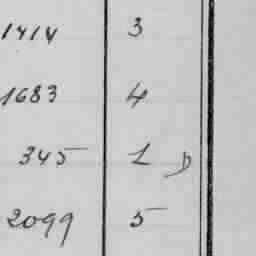 1414 3
1683 4
345 1 D
2099 5